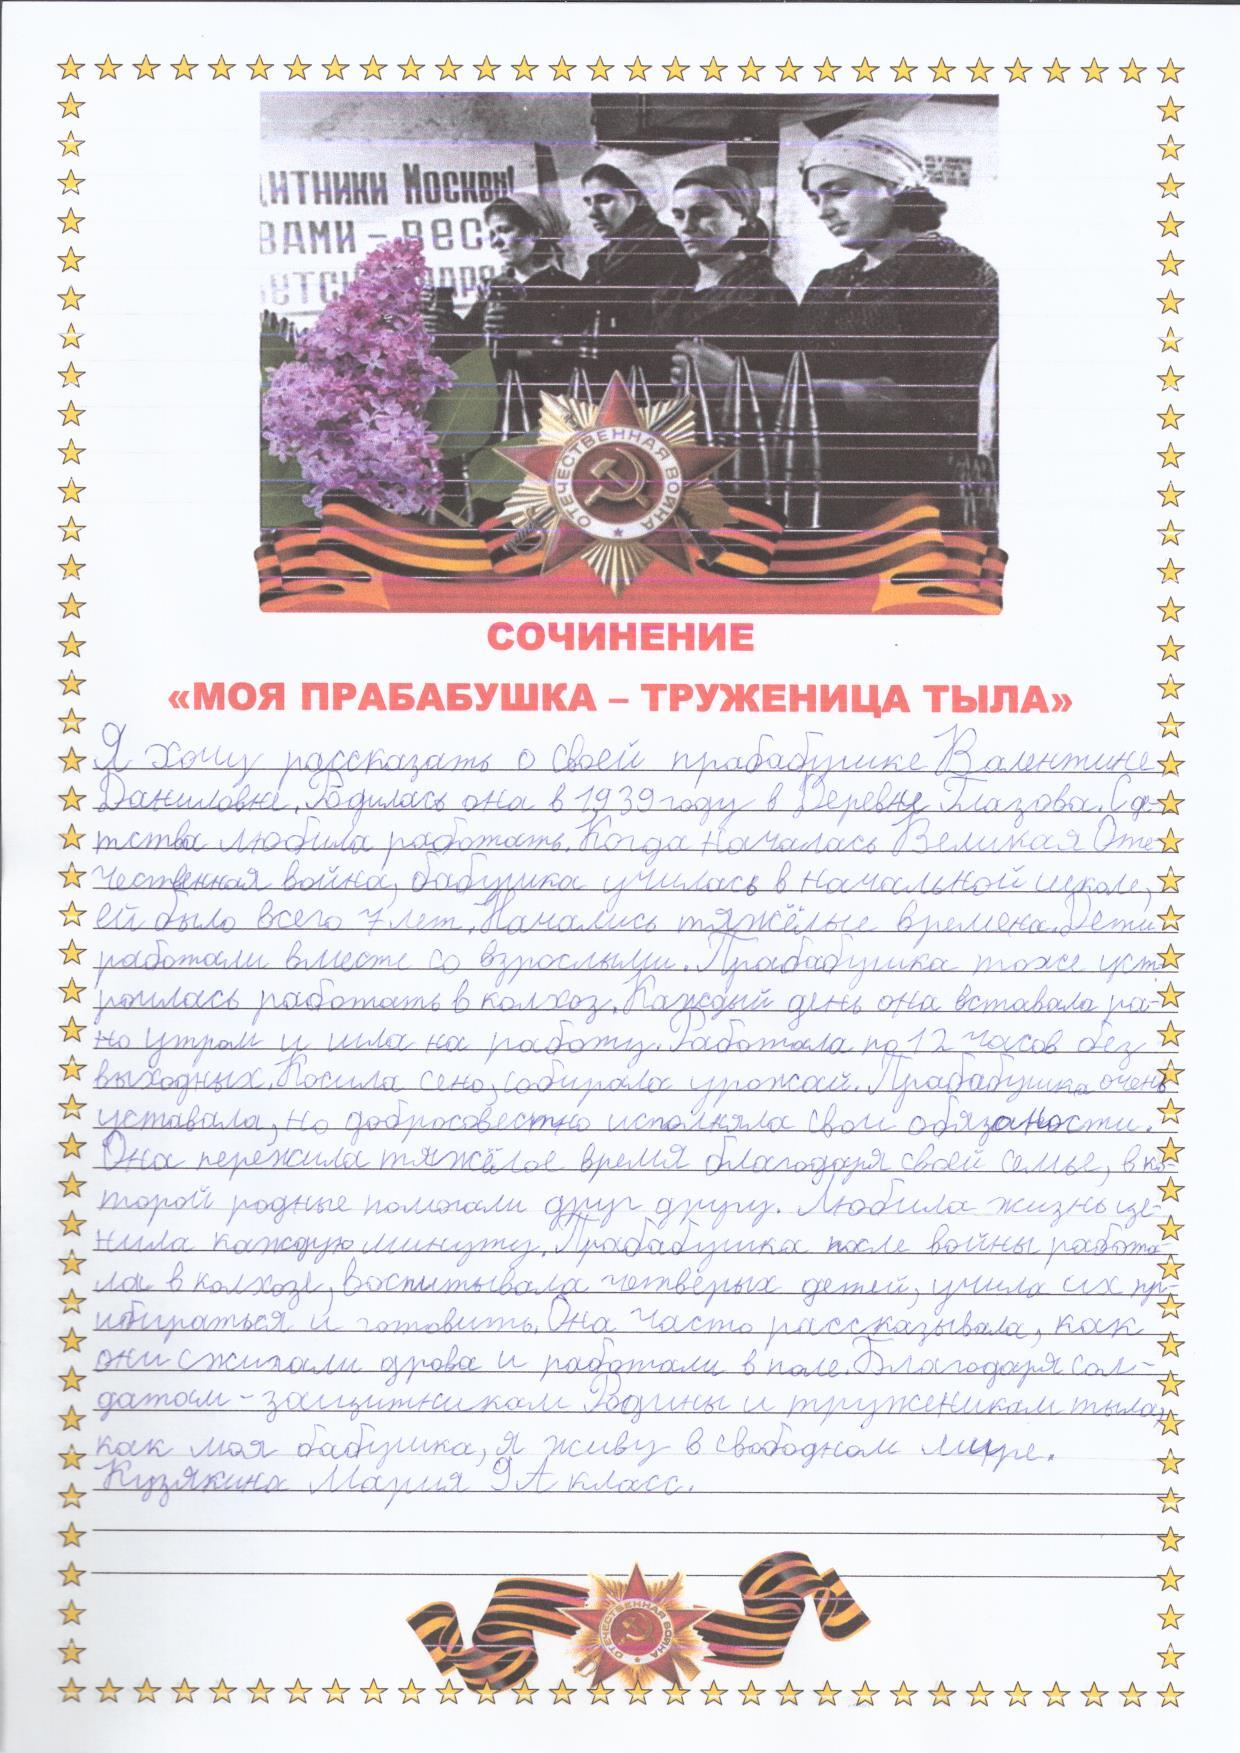 ЩИТНИКИ МОСКВЫ!
ВАМИ – ВЕС
ВЕТСК
НАРО
ОТЕЧЕСТВЕННАЯ ВОЙНА
СОЧИНЕНИЕ
«МОЯ ПРАБАБУШКА – ТРУЖЕНИЦА ТЫЛА»
Я хочу рассказать о своей прабабушке Валентине
Даниловне. Родилась она в 1939 году в Деревне Глазова. С де-
тства любила работать. Когда началась Великая Оте-
чественная война, бабушка училась в начальной школе,
ей было всего 7 лет. Начались тяжёлые времена. Дети
работали вместе со взрослыми. Прабабушка тоже уст-
роилась работать в колхоз. Каждый день она вставала ра-
но утром и шла на работу. Работала по 12 часов без
выходных. Косила сено, собирала урожай. Прабабушка очень
уставала, но добросовестно исполняла свои обязаности.
Она пережила тяжёлое время благодаря своей семье, в ко-
торой родные помогали друг другу. Любила жизнь це-
нила каждую минуту. Прабабушка после войны работа-
ла в колхозе, воспитывала четверых детей, учила их пр-
ибираться и готовить. Она часто рассказывала, как
они сжигали дрова и работали в поле. Благодаря сол-
датам - защитникам Родины и труженикам тыла,
как моя бабушка, я живу в свободном мире.
Кузякина Мария 9А класс.
ОТЕЧЕСТВЕННАЯ ВОЙНА